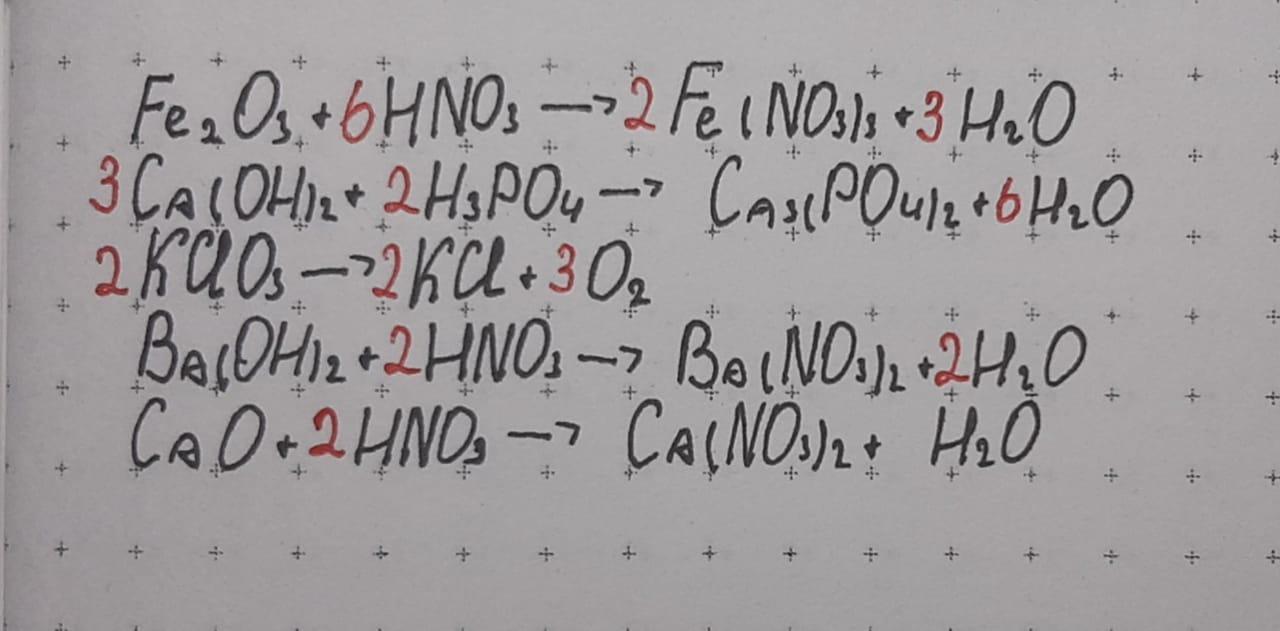 Fe₂O₃ + 6HNO₃ → 2Fe(NO₃)₃ + 3H₂O
3Ca(OH)₂ + 2H₃PO₄ → Ca₃(PO₄)₂ + 6H₂O
2KClO₃ → 2KCl + 3O₂
Ba(OH)₂ + 2HNO₃ → Ba(NO₃)₂ + 2H₂O
CaO + 2HNO₃ → Ca(NO₃)₂ + H₂O